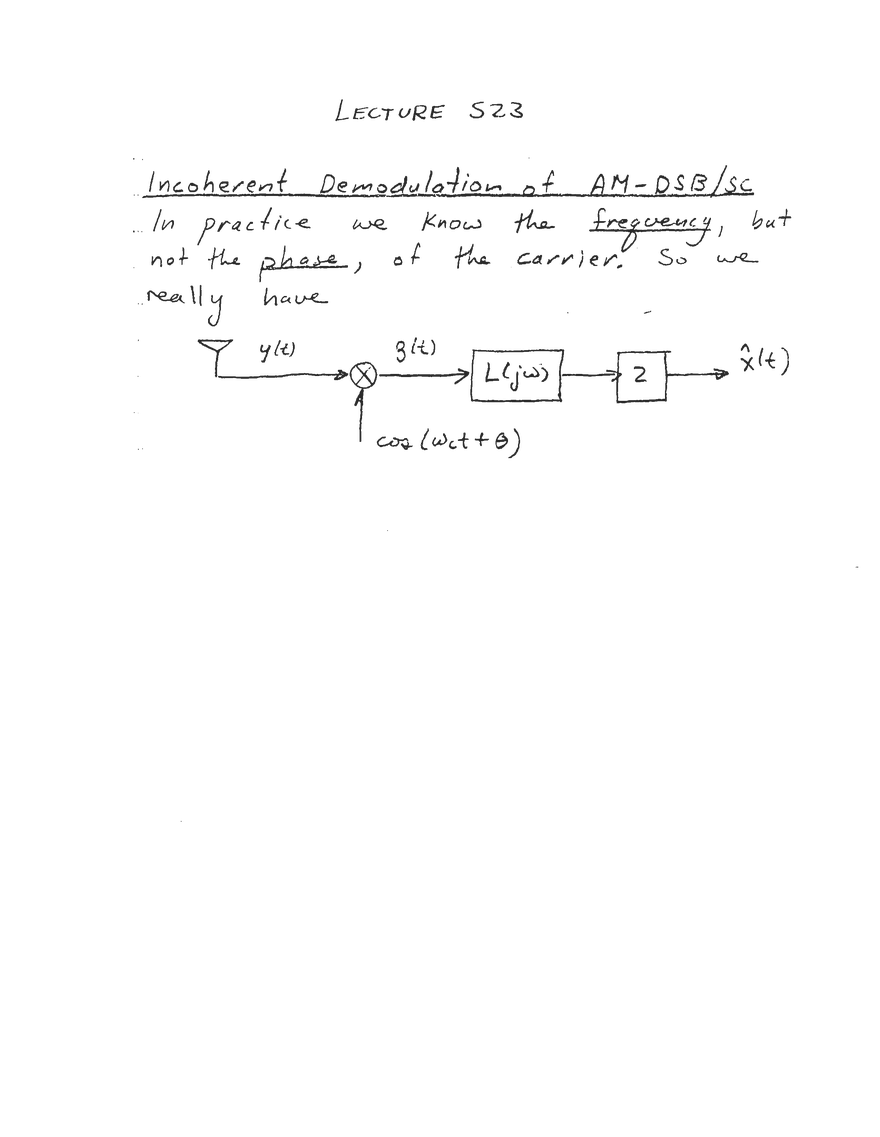 LECTURE S23
Incoherent Demodulation of AM-DSB/SC
In practice we know the frequency, but
not the phase, of the carrier. So we
really have
y(t) z(t) L(jω) 2 x̂(t)
cos(ωct + θ)